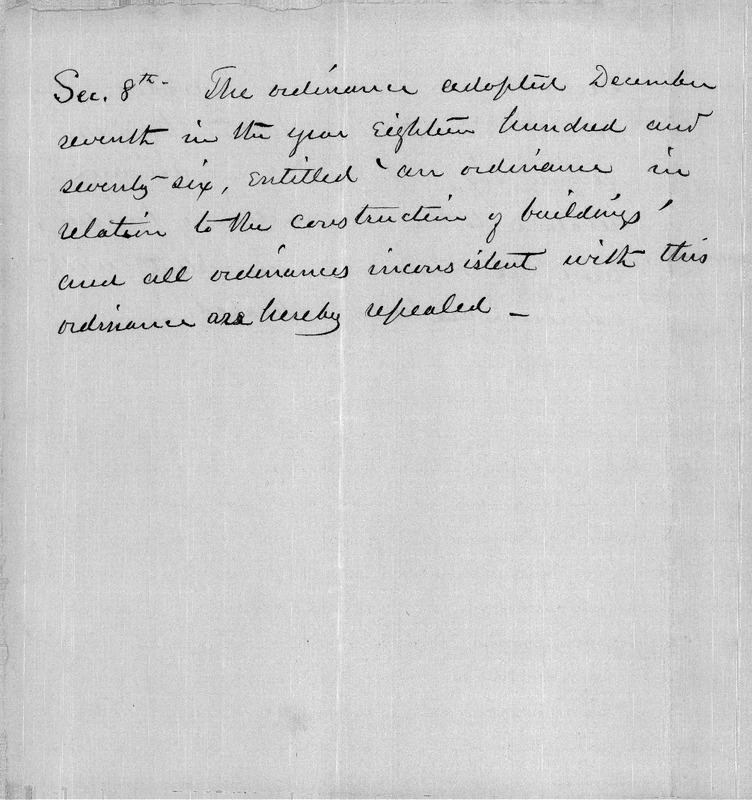 Sec. 8th- The ordinance adopted December
seventh in the year Eighteen hundred and
seventy-six, Entitled 'an ordinance in
relation to the construction of buildings'
and all ordinances inconsistent with this
ordinance are hereby repealed —